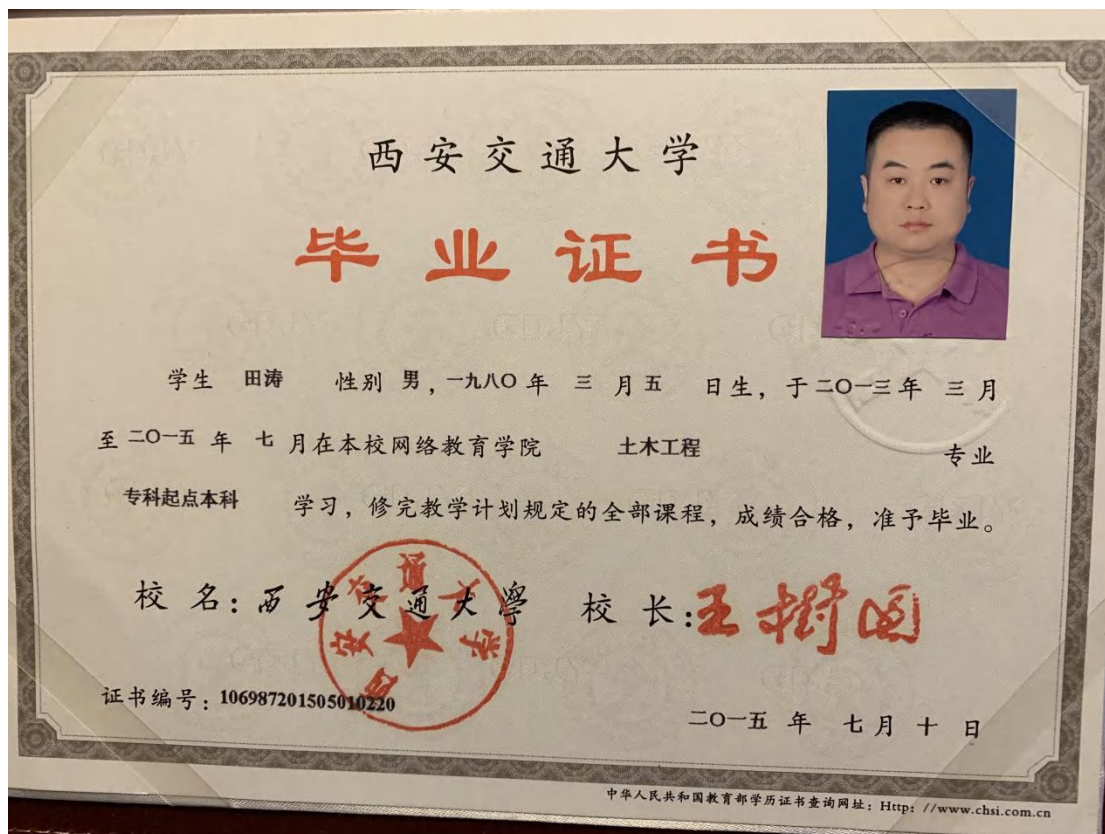 西安交通大学
毕业证书
学生 田涛 性别 男，一九八〇 年 三 月 五 日生，于 二〇一三 年 三 月
至 二〇一五 年 七 月在本校网络教育学院 土木工程 专业
专科起点本科 学习，修完教学计划规定的全部课程，成绩合格，准予毕业。
校 名：西安交通大學 校 长：王樹国
西安交通大学
证书编号：106987201505010220
二〇一五 年 七 月 十 日
中华人民共和国教育部学历证书查询网址：Http: //www.chsi.com.cn